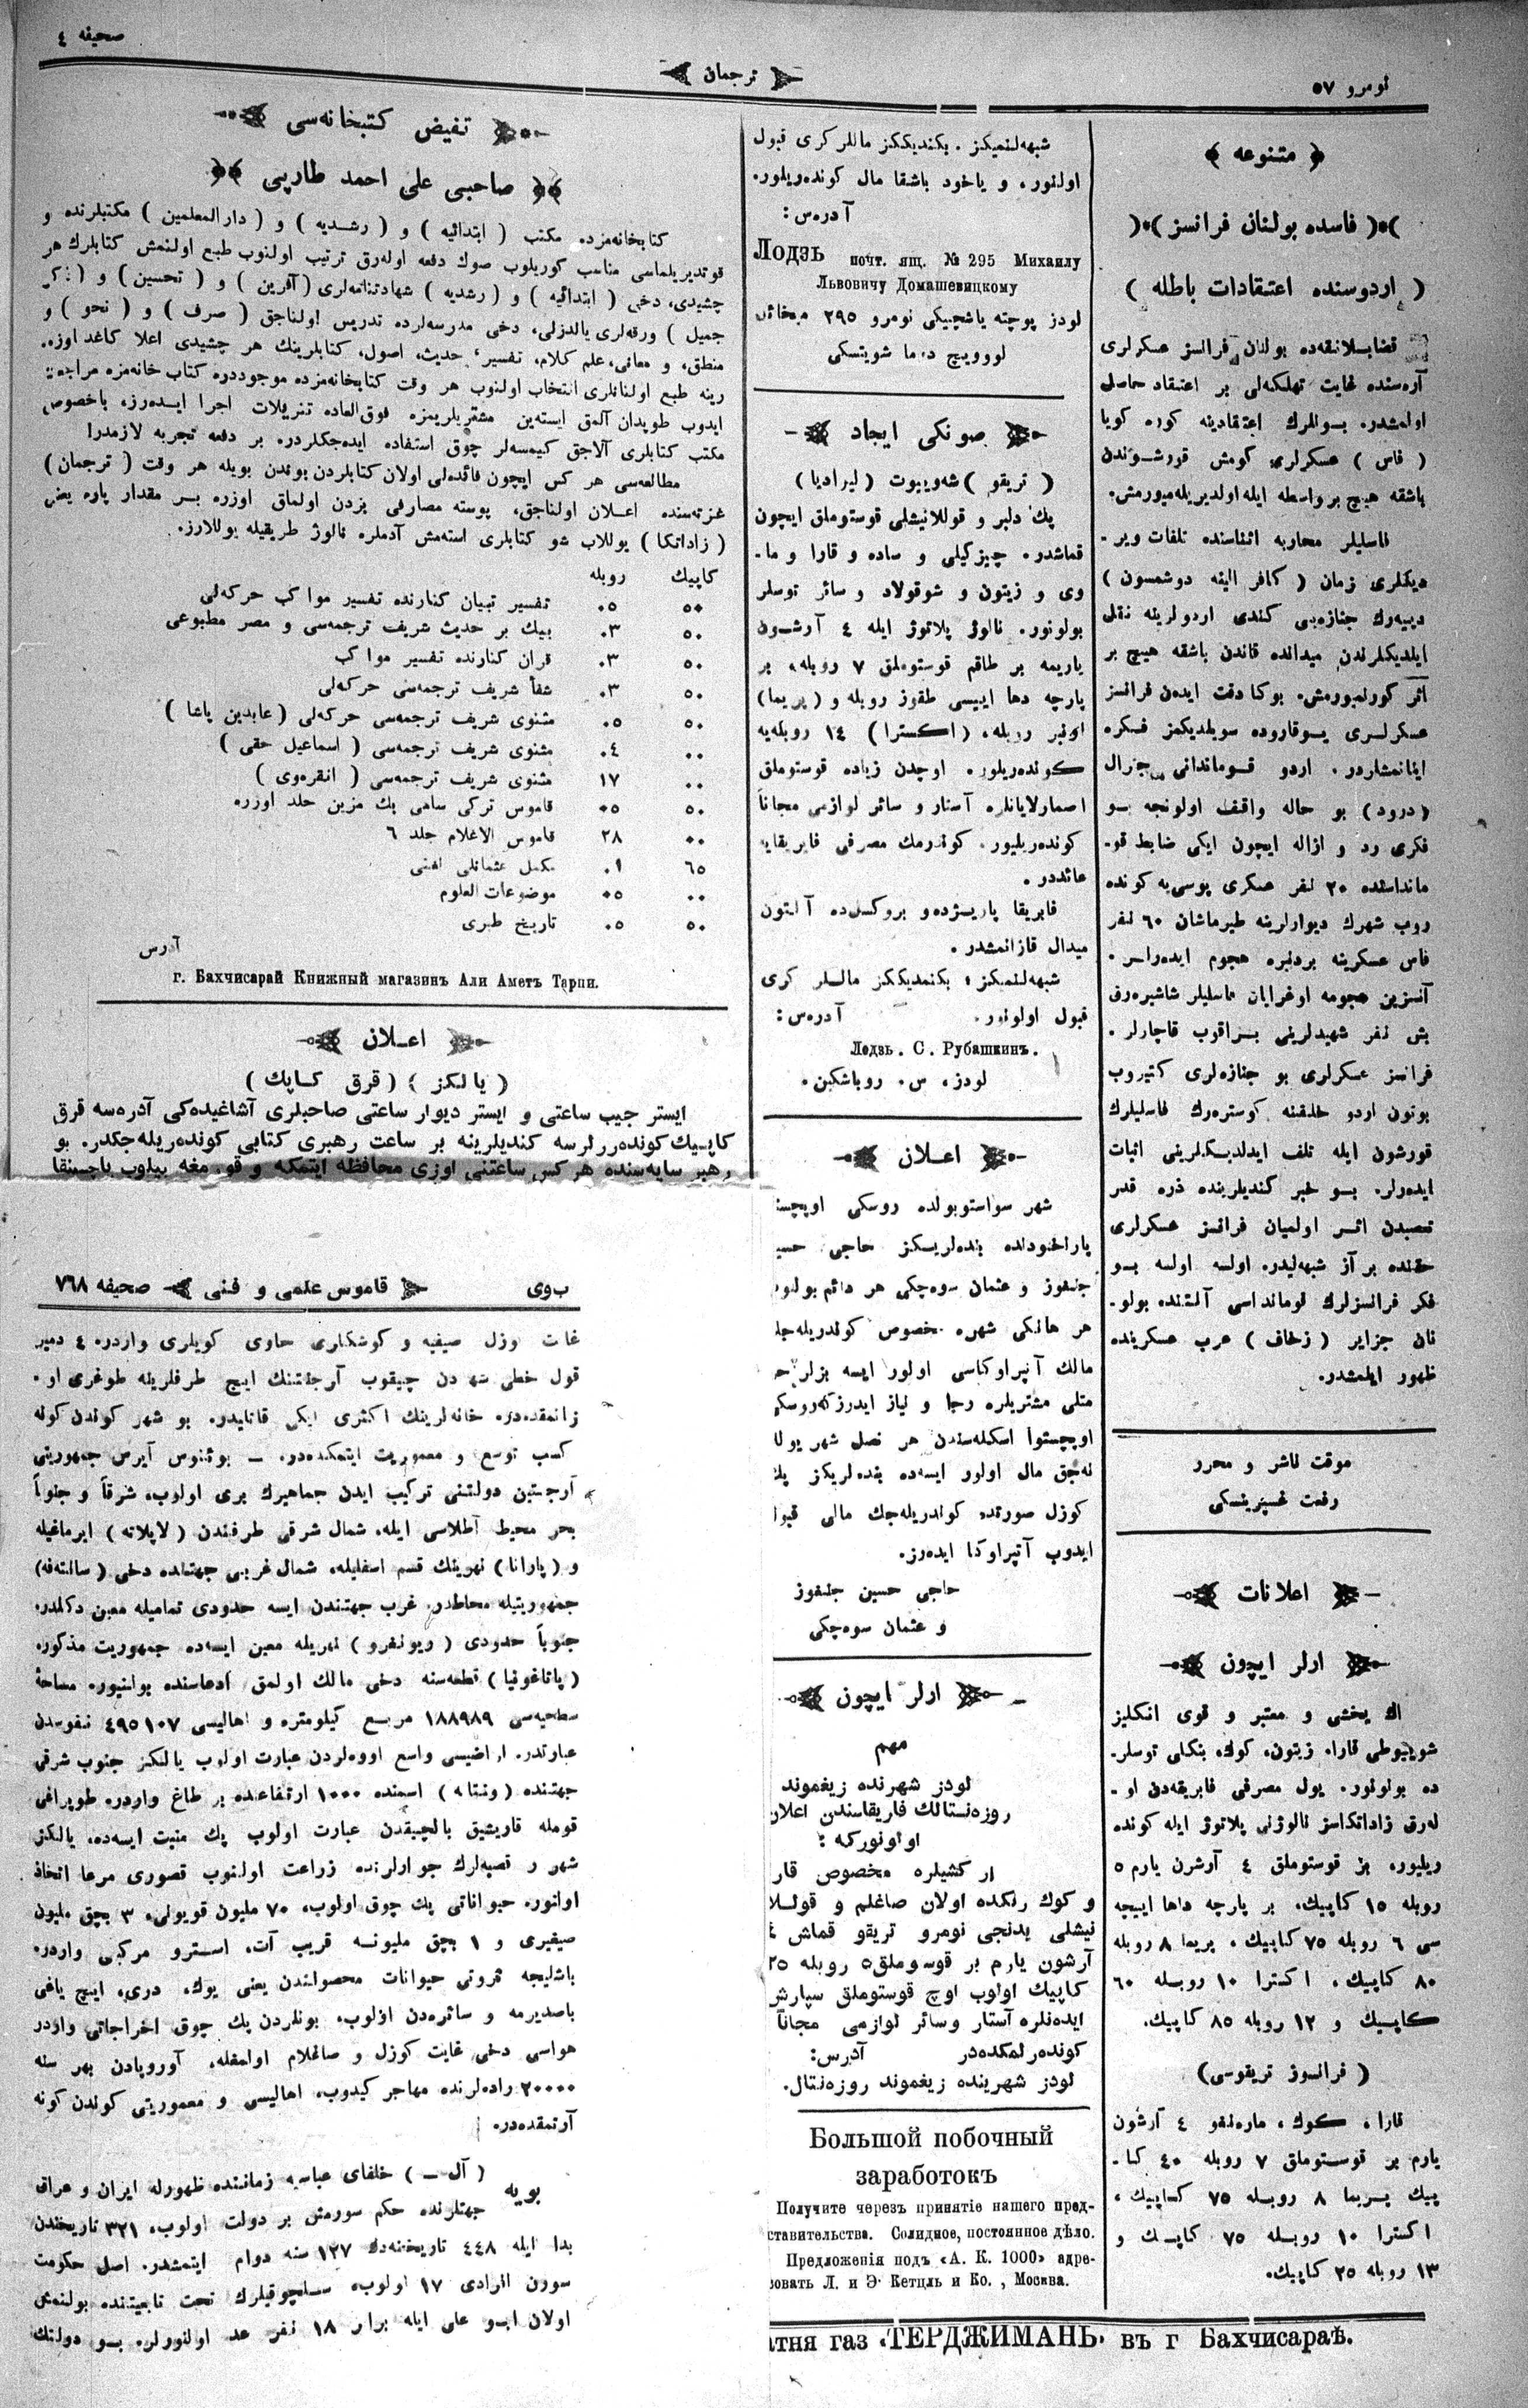 نومرو ٥٧
ترجمان
صحيفه ٤
﴿ متنوعه ﴾
)*( فاسده بولنان فرانسز )*(
( اردوسنده اعتقادات باطله )
قضابلانقه‌ده بولنان فرانسز عسكرلرى
آره‌سنده غايت تهلكه‌لى بر اعتقاد حاصل
اولمشدر. بونلرك اعتقادينه كوره كويا
( فاس ) عسكرلرى كومش قورشوندن
باشقه هيچ بر واسطه ايله اولديريله‌ميورمش.
فاسليلر محاربه اثناسنده تلفات وير-
ديكلرى زمان ( كافر الينه دوشمسون )
دييه‌رك جنازه‌يى كندى اردولرينه نقل
ايلديكلرندن ميدانده قاندن باشقه هيچ بر
اثر كورلميورمش. بوكا دقت ايدن فرانسز
عسكرلرى يوقاروده سويلديكمز فكره
اينانمشلردر. اردو قوماندانى جنرال
(درود) بو حاله واقف اولونجه بو
فكرى رد و ازاله ايچون ايكى ضابط قو-
مانداسنده ٢٠ نفر عسكرى پوسى‌يه كونده
روب شهرك ديوارلرينه طيرماشان ٦٠ نفر
فاس عسكرينه بردنبره هجوم ايده‌رلر.
آنسزين هجومه اوغرايان فاسليلر شاشيره‌رق
بش نفر شهيدلرينى براقوب قاچارلر.
فرانسز عسكرلرى بو جنازه‌لرى كتيروب
بوتون اردو خلقنه كوستره‌رك فاسليلرك
قورشون ايله تلف ايدلديكلرينى اثبات
ايده‌رلر. بو خبر كنديلرينده ذره قدر
تعصبدن اثر اولميان فرانسز عسكرلرى
حقنده بر آز شبهه‌ليدر. اولسه اولسه بو
فكر فرانسزلرك قومانداسى آلتنده بولو-
نان جزاير ( زخاف ) عرب عسكرينده
ظهور ايلمشدر.
موقت ناشر و محرر
رفعت غسپرينسكى
اعلانات
ارلر ايچون
اك يخشى و معتبر و قوى انكليز
شويوطى قارا، زيتون، كوك، بنكلى توسلر-
ده بولونور. يول مصرفى فابريقه‌دن او-
له‌رق زاداتكاسز نالوژنى پلاتوژ ايله كونده
ريليور. بر قوستوملق ٤ آرشون يارم ٥
روبله ١٥ كاپيك، بر پارچه داها اييجه
سى ٦ روبله ٧٥ كاپيك، پريما ٨ روبله
٨٠ كاپيك، اكسترا ١٠ روبله ٦٠
كاپيك و ١٢ روبله ٨٥ كاپيك.
( فرانسوز تريقوسى)
قارا، كوك، مارەنغو ٤ آرشون
يارم بر قوستوملق ٧ روبله ٤٠ كا-
پيك پريما ٨ روبله ٧٥ كاپيك،
اكسترا ١٠ روبله ٧٥ كاپيك و
١٣ روبله ٢٥ كاپيك.
شبهه‌لنميكز. بكنديككز ماللر كرى قبول
اولنور، و ياخود باشقا مال كونده‌ريلور.
آدره‌س:
Лодзь почт. ящ. № 295 Михаилу
Львовичу Домашевицкому
لودز پوچته ياشچيكى نومرو ٢٩٥ ميخائل
لوووويچ دوماشويتسكى
صونكى ايجاد
( تريقو ) شه‌ويوت (ليراديا)
پك دلبر و قوللانيشلى قوستوملق ايچون
قماشدر. چيزكيلى و ساده و قارا و ما-
وى و زيتون و شوقولاد و سائر توسلر
بولونور. نالوژ پلاتوژ ايله ٤ آرشون
ياريمه بر طاقم قوستوملق ٧ روبله، بر
پارچه دها اييسى طقوز روبله و (پريما)
اونبر روبله، (اكسترا) ١٤ روبله‌يه
كونده‌ريلور. اوچدن زياده قوستوملق
اصمارلايانلره آستار و سائر لوازمى مجاناً
كونده‌ريليور. كوندرمك مصرفى فابريقايه
عائددر.
فابريقا پاريسژده‌و بروكسل‌ده آلتون
ميدال قازانمشدر.
شبهه‌لنميكز؛ بكنمديككز ماللر كرى
قبول اولونور. آدره‌س:
Лодзь. С. Рубашкинъ.
لودز، س. روباشكين.
اعلان
شهر سواستوپولده روسكى اوبچست
پاراخودنده بنده‌لريكز حاجى حسين
جنفوز و عثمان سوه‌چكى هر دائم بولنوب
هر هانكى شهره مخصوص كوندريله‌جك
مالك آتپراوكاسى اولور ايسه بزلر
متلى مشتريلره رجا و نياز ايدرزكه‌روسكى
اوبچستوا اسكله‌سندن هر نصل شهر يوللا
نه‌جق مال اولور ايسه‌ده بنده‌لريكز پك
كوزل صورتده كوندريله‌جك مالى قبول
ايدوب آتپراوكا ايده‌رز.
حاجى حسين جنفوز
و عثمان سوه‌چكى
ارلر ايچون
مهم
لودز شهرنده زيغموند
روزه‌نستالك فاريقاسندن اعلان
اولونوركه:
ار كشيلره مخصوص قارا
و كوك رنكده اولان صاغلم و قوللا
نيشلى يدنجى نومرو تريقو قماش ٤
آرشون يارم بر قوستوملق٥ روبله ٢٥
كاپيك اولوب اوچ قوستوملق سپارش
ايده‌نلره آستار وسائر لوازمى مجاناً
كونده‌رلمكده‌در آدرس:
لودز شهرينده زيغموند روزه‌نتال.
Большой побочный
заработокъ
Получите черезъ принятіе нашего пред-
ставительства. Солидное, постоянное дѣло.
Предложенія подъ «А. К. 1000» адре-
зовать Л. и Э. Кетцль и Ко., Москва.
атня газ «ТЕРДЖИМАНЬ» въ г Бахчисараѣ.
تفيض كتبخانه‌سى
صاحبى على احمد طارپى
كتابخانه‌مزده مكتب ( ابتدائيه ) و ( رشديه ) و ( دارالمعلمين ) مكتبلرنده و
قوتديريلماسى مناسب كوريلوب صوك دفعه اوله‌رق ترتيب اولنوب طبع اولنمش كتابلرك هر
چشيدى، دخى ( ابتدائيه ) و ( رشديه ) شهادتنامه‌لرى (آفرين ) و ( تحسين ) و
جميل ) ورقه‌لرى يالدزلى، دخى مدرسه‌لرده تدريس اولناجق ( صرف ) و ( نحو ) و
منطق، و معانى، علم كلام، تفسير، حديث، اصول، كتابلرينك هر چشيدى اعلا كاغد اوزه-
رينه طبع اولنانلرى انتخاب اولنوب هر وقت كتابخانه‌مزده موجوددره كتاب خانه‌مزه مراجعه
ايدوب طوپدان آلمق ايستەين مشتريلريمزه فوق‌العاده تنزيلات اجرا ايده‌رز، باخصوص
مكتب كتابلرى آلاجق كيمسه‌لر چوق استفاده ايده‌جكلردر. بر دفعه تجربه لازمدر!
مطالعه‌سى هر كس ايچون فائده‌لى اولان كتابلردن بوندن بويله هر وقت ( ترجمان )
غزته‌سنده اعلان اولناجق، پوسته مصارفى بزدن اولماق اوزره بر مقدار پاره يعنى
( زاداتكا ) يوللاب شو كتابلرى استه‌مش آدملره نالوژ طريقيله يوللارز.
كاپيك روبله
٥٠ ٠٥ تفسير تبيان كنارنده تفسير مواكب حركه‌لى
٥٠ ٠٣ بيك بر حديث شريف ترجمه‌سى و مصر مطبوعى
٥٠ ٠٣ قرآن كنارنده تفسير مواكب
٥٠ ٠٣ شفأ شريف ترجمه‌سى حركه‌لى
٥٠ ٠٥ مثنوى شريف ترجمه‌سى حركه‌لى (عابدين پاشا )
٠٠ ٠٤ مثنوى شريف ترجمه‌سى ( اسماعيل حقى )
٠٠ ١٧ مثنوى شريف ترجمه‌سى ( انقره‌وى )
٥٠ ٠٥ قاموس تركى سامى بك مزين جلد اوزره
٠٠ ٢٨ قاموس الاعلام جلد ٦
٦٥ ٠١ مكمل عثمانلى لغتى
٠٠ ٠٥ موضوعات العلوم
٥٠ ٠٥ تاريخ طبرى
آدرس
г. Бахчисарай Книжный магазинъ Али Аметъ Тарпи.
اعلان
( يالكز ) ( قرق كاپك )
ايستر جيب ساعتى و ايستر ديوار ساعتى صاحبلرى آشاغيده‌كى آدره‌سه قرق
كاپيك كونده‌ررلرسه كنديلرينه بر ساعت رهبرى كتابى كونده‌ريله‌جكدر. بو
رهبر سايه‌سنده هر كس ساعتنى اوزى محافظه ايتمكه و قورمغه بيلوب
ب‌وى قاموس علمى و فنى صحيفه ٧٦٨
غات وزل صيفيه و كوشكلرى حاوى كويلرى واردره ٤ دمير
قول خطى شهردن چيقوب آرجنتنك ايچ طرفلرينه طوغرى او-
زانمقده‌دره خانه‌لرينك اكثرى ايكى قاتليدر. بو شهر كوندن كونه
كسب توسع و معموريت ايتمكده‌در. — بوئنوس آيرس جمهوريتى
آرجنتين دولتنى تركيب ايدن جماهيرك برى اولوب، شرقاً و جنوباً
بحر محيط آطلاسى ايله، شمال شرقى طرفندن ( لاپلاته ) ايرماغيله
و ( پارانا ) نهرينك قسم اسفليله، شمال غربى جهتنده دخى ( سانته‌فه)
جمهوريتيله محاطدر. غرب جهتندن ايسه حدودى تماميله معين دكلدر.
جنوباً حدودى ( ريونغرو ) نهريله معين ايسه‌ده جمهوريت مذكوره
( پاتاغونيا ) قطعه‌سنه دخى مالك اولمق ادعاسنده بولنيور. مساحهٔ
سطحيه‌سى ١٨٨٩٨٩ مربع كيلومتره و اهاليسى ٤٩٥١٠٧ نفوسدن
عبارتدر. اراضيسى واسع اووه‌لردن عبارت اولوب يالكز جنوب شرقى
جهتنده ( ونتانه ) اسمنده ١٠٠٠ ارتفاعنده بر طاغ واردره طوپراغى
قومله قاريشيق بالچيقدن عبارت اولوب پك منبت ايسه‌ده، يالكز
شهر و قصبه‌لرك جوارلرنده زراعت اولنوب قصورى مرعا اتخاذ
اولنور. حيواناتى پك چوق اولوب، ٧٠ مليون قويونى، ٣ بچق مليون
صيغيرى و ١ بچق مليونه قريب آت، استر و مركبى واردر.
باشليجه ثروتى حيوانات محصولندن يعنى يوك، درى، ايچ ياغى
باصديرمه و سائره‌دن اولوب، بونلردن پك چوق اخراجاتى واردر
هواسى دخى غايت كوزل و صاغلام اولمغله، آوروپادن بهر سنه
٢٠٠٠٠ راده‌لرنده مهاجر كيدوب، اهاليسى و معموريتى كوندن كونه
آرتمقده‌در.
بويه ( آل — ) خلفاى عباسيه زماننده ظهورله ايران و عراق
جهتلرنده حكم سورمش بر دولت اولوب، ٣٢١ تاريخندن
بدأ ايله ٤٤٨ تاريخنه‌دك ١٢٧ سنه دوام ايتمشدر. اصل حكومت
سورن افرادى ١٧ اولوب، سلجوقيلرك تحت تابعيتنده بولنمش
اولان ابو على ايله برابر ١٨ نفر عد اولنورلر. بو دولتك